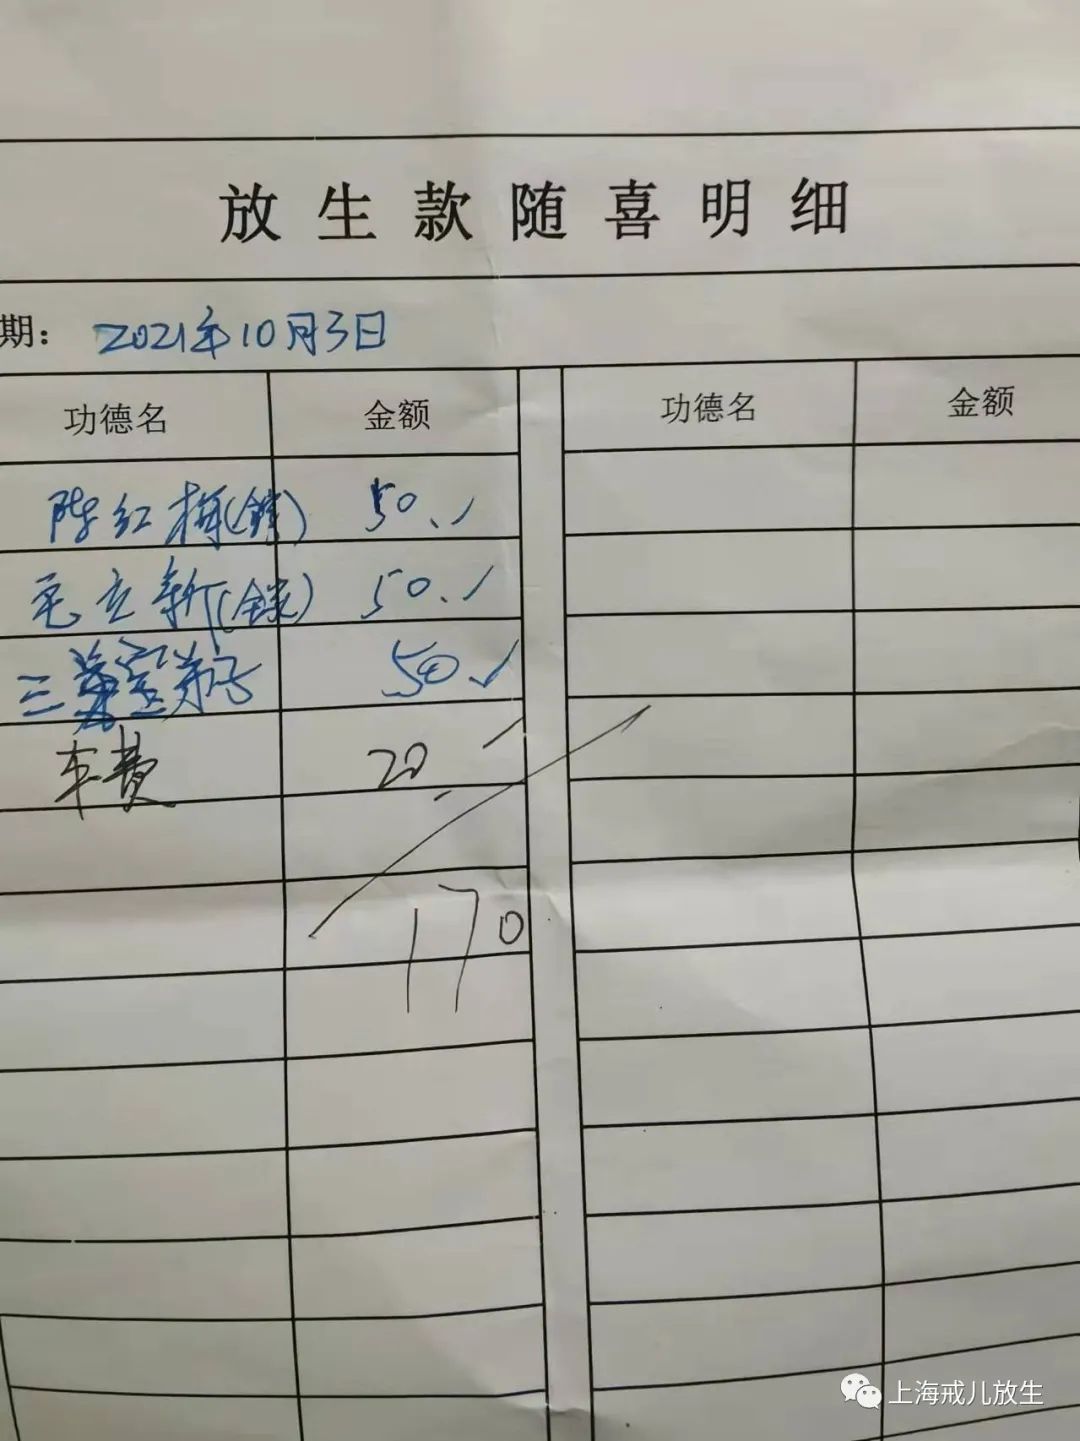 放生款随喜明细
期: 2021年10月3日
功德名 金额 功德名 金额
陈红梅( ) 50.✓
毛立新( ) 50.✓
三宝弟子 50✓
车费 20
170
上海戒儿放生